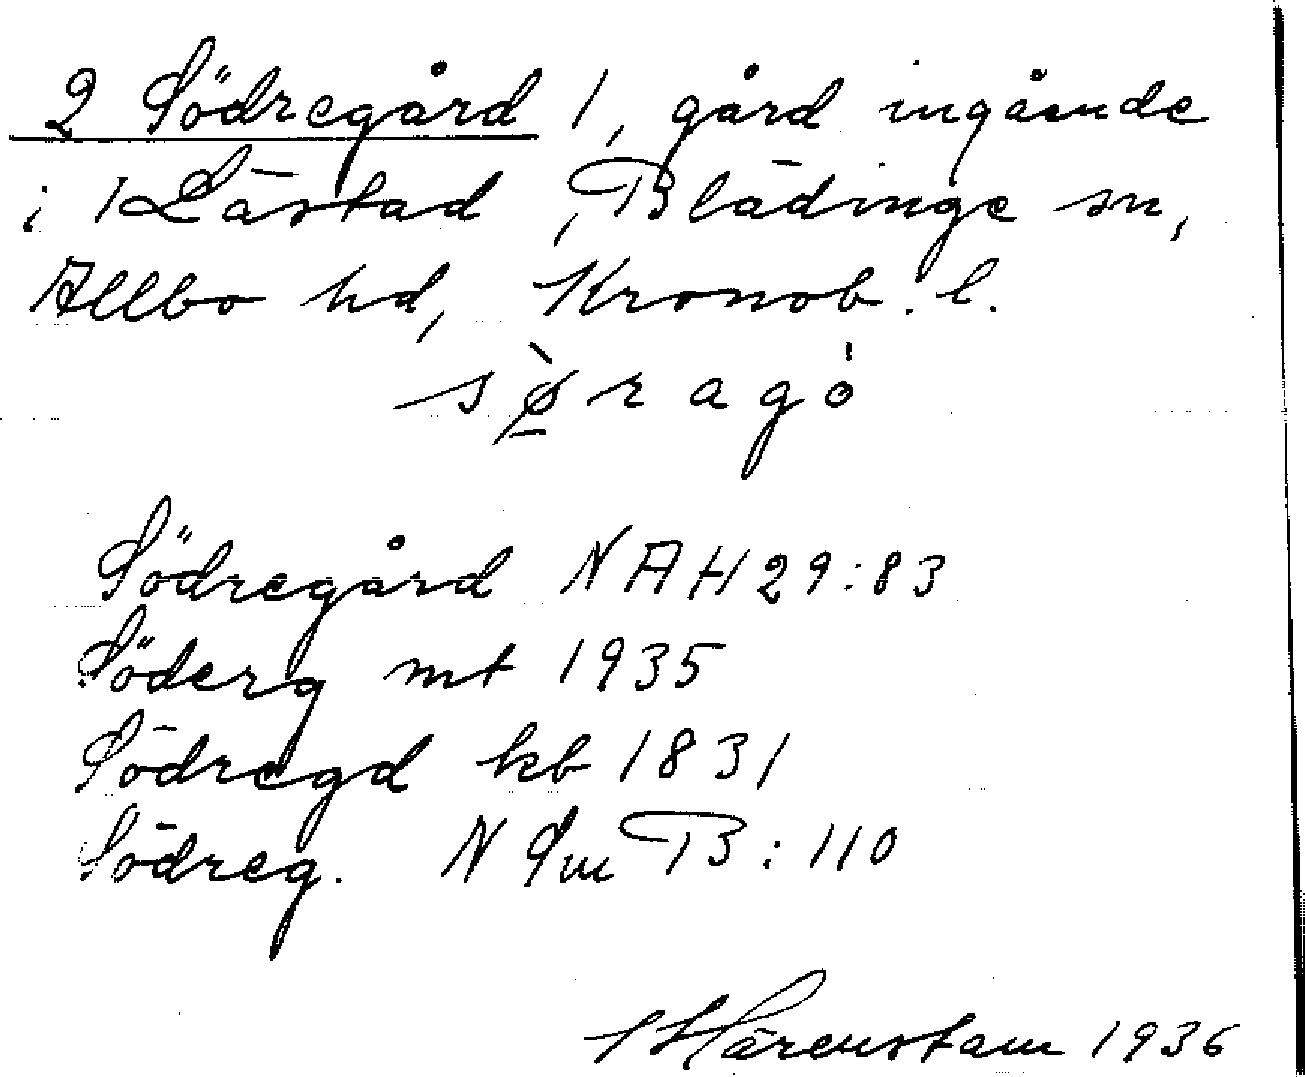 2 Södregård 1, gård ingående
i 1 Låstad, Blädinge sn,
Allbo hd, Kronob. l.
sø̀ragó
Södregård NAH29:83
Söderg mt 1935
Södregd kb 1831
Södreg. N Sm B:110
Härenstam 1936